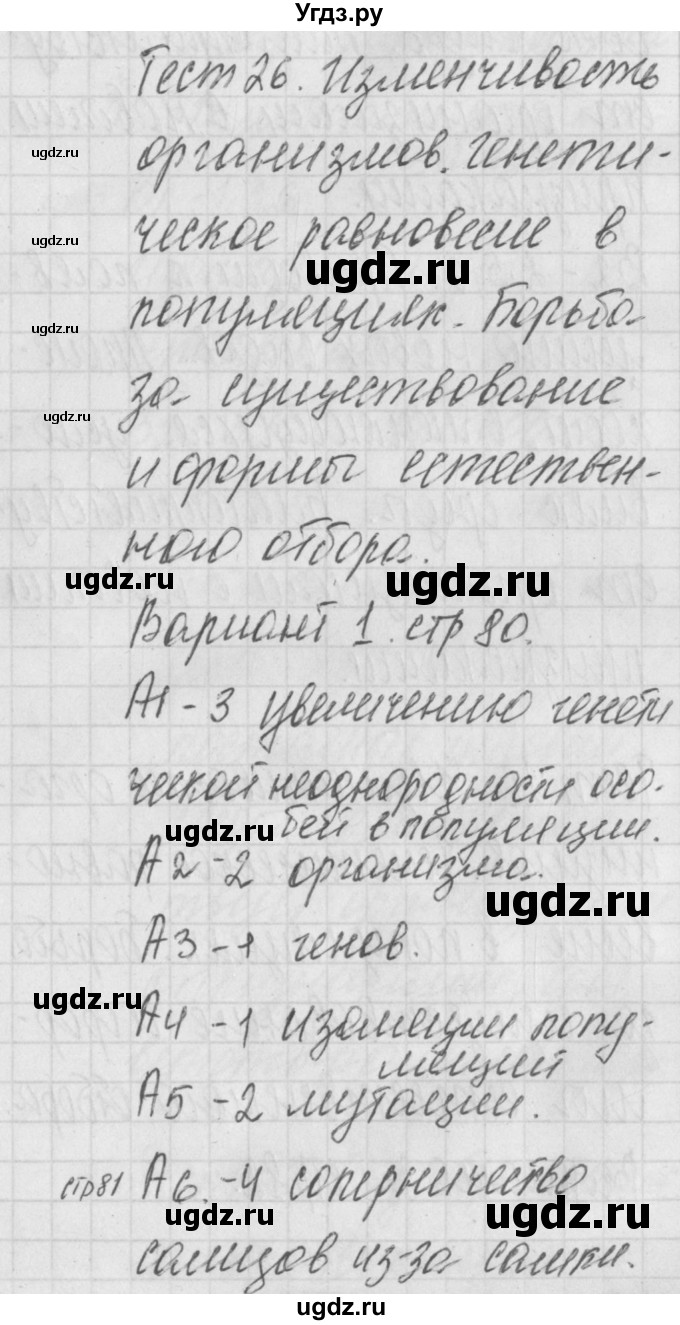 Угдз.ру
Тест 26. Изменчивость
ugdz.ru
организмов. Генети-
ugdz.ru
ческое равновесие в
ugdz.ru
ugdz.ru
популяциях. Борьба
за существование
ugdz.ru
и формы естествен-
ного отбора.
ugdz.ru
ugdz.ru
Вариант 1. стр 80.
А1 - 3 увеличению генети
ческой неоднородности осо-
бей в популяции.
ugdz.ru
А2 - 2 организма.
ugdz.ru
А3 - 1 генов.
ugdz.ru
А4 - 1 изоляции попу-
ляций
А5 - 2 мутации.
стр 81 А6. - 4 соперничество
ugdz.ru
ugdz.ru
самцов из-за самки.
ugdz.ru